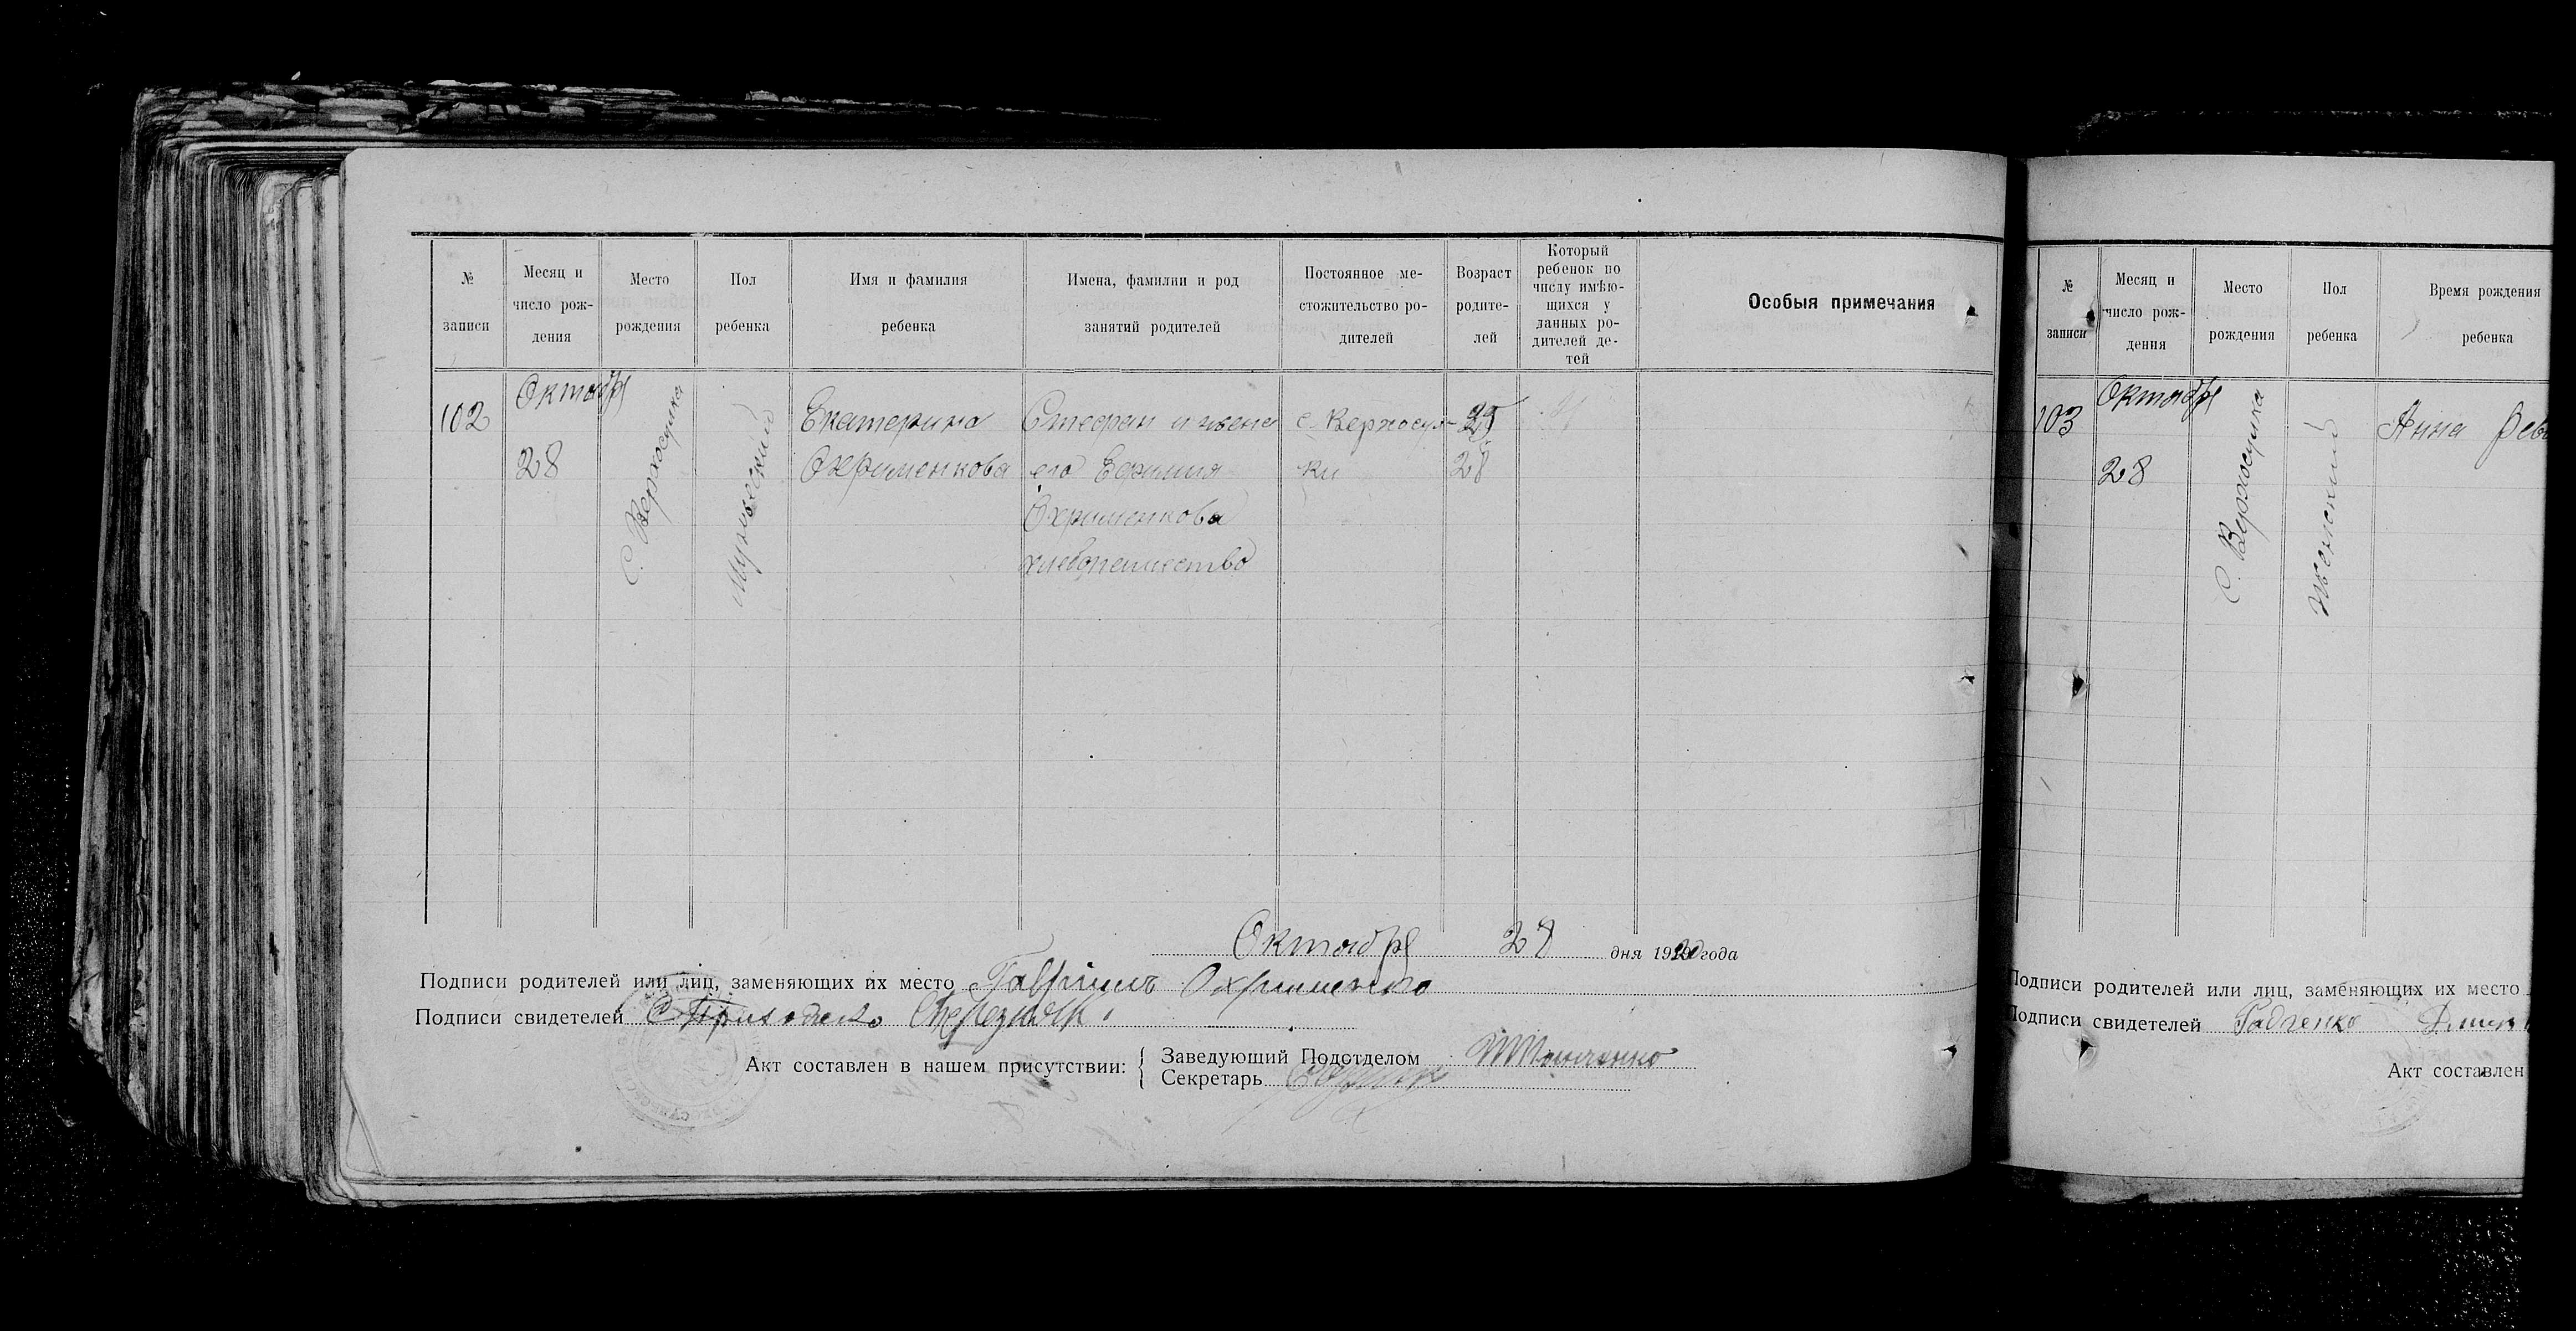 № записи
Месяц и число рождения
Место рождения
Пол ребенка
Имя и фамилия ребенка
Имена, фамилии и род занятий родителей
Постоянное местожительство родителей
Возраст родителей
Который ребенок по числу имѣющихся у данных родителей детей
Особыя примечания
102
Октября
28
С. Верхосулка
Мужеский
Екатерина
Охрименкова
Стефан и жена
его Ефимия
Охрименкова
хлебопашество
с Верхосул-
ки
25
28
Октября 28 дня 1920 года
Подписи родителей или лиц, заменяющих их место Гавриилъ Охрименко
Подписи свидетелей С Приходько
Акт составлен в нашем присутствии:
Заведующий Подотделом
Секретарь
№ записи
Месяц и число рождения
Место рождения
Пол ребенка
Время рождения ребенка
103
Октября
28
С. Верхосулка
Женский
Анна
Подписи родителей или лиц, заменяющих их место
Подписи свидетелей Радченко
Акт составлен